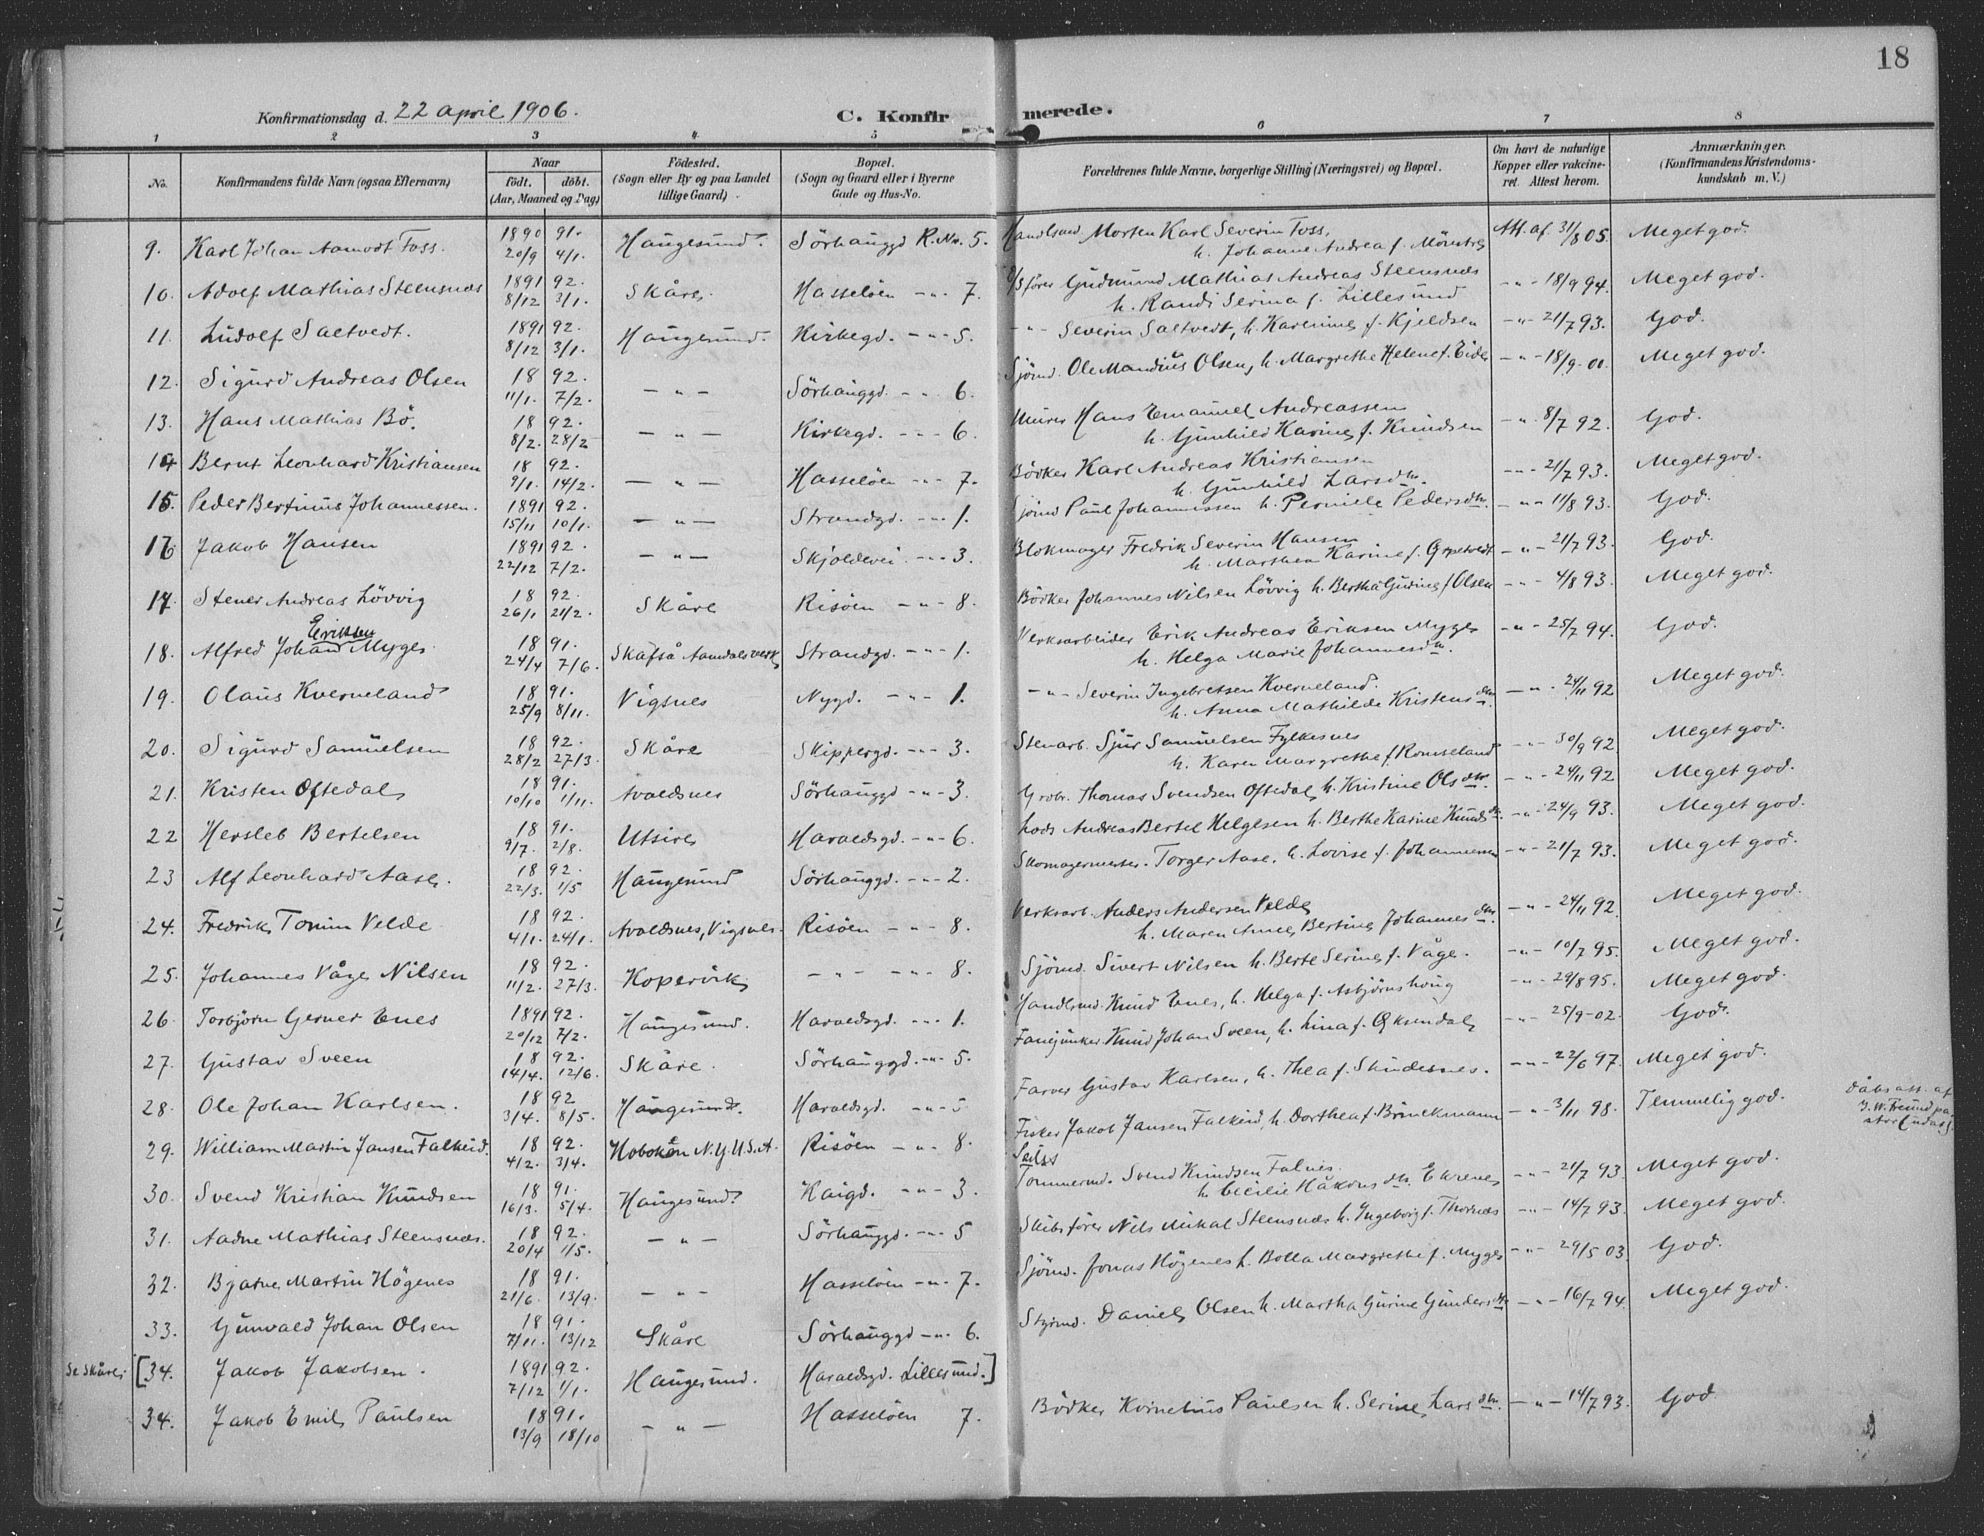 18
Konfirmationsdag d. 22 April 1906.
C. Konfirmerede.
1 2 3 4 5 6 7 8
No. Konfirmandens fulde Navn (ogsaa Efternavn) Naar födt. döbt. (Aar, Maaned og Dag) Födested. (Sogn eller By og paa Landet tillige Gaard) Bopæl. (Sogn og Gaard eller i Byerne Gade og Hus-No. Forældrenes fulde Navne, borgerlige Stilling (Næringsvei) og Bopæl. Om havt de naturlige Kopper eller vakcineret. Attest herom. Anmærkninger. (Konfirmandens Kristendomskundskab m. V.)
9. Karl Johan Aamodt Foss. 1890 20/9 91. 4/1. Haugesund. Sörhauggd R.No. 5. Handlsmd Morten Karl Severin Foss, h. Johanne Andrea f. Mönstre Att. af 31/8 05. Meget god.
10. Adolf Mathias Steensnæs 1891 8/12 92. 3/1. Skåre. Hasselöen -"- 7. S/fører Gudmund Mathias Andreas Steensnæs h. Randi Serina f. Lillesund -"- 18/9 94. Meget god.
11. Ludolf Saltvedt. 1891 8/12 92. 3/1. Haugesund. Kirkegd. -"- 5. -"- Severin Saltvedt, h. Karenine f. Kjeldsen -"- 21/7 93. God.
12. Sigurd Andreas Olsen 18 11/1. 92. 7/2. -"- Sörhauggd. -"- 6. Sjömd. Ole Mandius Olsen, h. Margrethe Helene f. Eide -"- 18/9 00. Meget god.
13. Hans Mathias Bö. 18 8/2. 92. 28/2 -"- Kirkegd. -"- 6. Murer Hans Emanuel Andreassen h. Gunhild Karine f. Knudsen -"- 8/7 92. God.
14 Bernt Leonhard Kristiansen 18 9/1. 92. 14/2. -"- Hasselöen -"- 7. Bödker Karl Andreas Kristiansen h. Gunhild Larsdtr. -"- 21/7 93. Meget god.
15. Peder Bertinus Johannessen. 1891 15/11 92. 10/1. -"- Strandgd. -"- 1. Sjömd Paul Johannissen h. Pernille Pedersdtr. -"- 11/8 93. God.
16 Jakob Hansen 1891 22/12 92. 7/2. -"- Skjoldevei. -"- 3. Blokmager Fredrik Severin Hansen h. Marthea Karine f. Grytvedt -"- 21/7 93. God.
17. Stener Andreas Lövvig 18 26/1 92. 21/2. Skåre Risöen -"- 8. Bödker Johannes Nilsen Lövvig h. Bertha Gurine f Olsen -"- 4/8 93. Meget god.
18. Alfred Johan Eriksen Myges 18 24/4 91. 7/6. Skafså Aamdalsverk Strandgd. -"- 1. Verksarbeider Erik Andreas Eriksen Myges h. Helga Marie Johannesdtr. -"- 25/7 94. God.
19. Olaus Kverneland 18 25/9 91. 8/11. Vigsnes Nygd. -"- 1. -"- Severin Ingebretsen Kverneland. h. Anna Mathilde Kristensdtr -"- 24/11 92 Meget god.
20. Sigurd Samuelsen 18 28/2 92. 27/3. Skåre Skippergd. -"- 3. Stenarb. Sjur Samuelsen Fylkesnes h. Karen Margrethe f. Romseland -"- 30/9 92 Meget god.
21. Kristen Oftedal 18 10/10 91. 1/11. Avaldsnes Sörhauggd -"- 3. Thomas Svendsen Oftedal, h. Kristine Olsdtr. -"- 24/11 92 Meget god.
22 Hersleb Bertelsen 18 9/7. 91. 2/8. Utsire Haraldsgd. -"- 6. Lods Andreas Bertel Helgesen h. Berthe Karine Knudsdtr. -"- 24/9 93. Meget god.
23 Alf Leonhard Aase. 18 22/3. 92. 1/5 Haugesund Sörhauggd. -"- 2. Skomagermester Torger Aase, h. Lovise f. Johannesen -"- 21/7 93. Meget god.
24. Fredrik Tonim Velde 18 4/1. 92. 24/1. Avaldsnes, Vigsnes. Risöen -"- 8. Verksarb. Anders Andersen Velde h. Maren Anne Bertine Johannesdtr. -"- 24/11 92. Meget god.
25. Johannes Våge Nilsen 18 11/2. 92. 27/3. Kopervik -"- -"- 8. Sjömd. Sivert Nilsen h. Berte Serine f. Våge. -"- 10/7 95. Meget god.
26. Torbjörn Gerner Enes 1891 20/12 92. 7/2. Haugesund. Haraldsgd. -"- 1. Handlsmd. Knud Enes, h. Helga f. Asbjörnshoug -"- 29/8 95. Meget god.
27. Gustav Sveen 18 14/4. 92. 12/6. Skåre. Sörhauggd. -"- 5 Fanejunker Knud Johan Sveen, h. Lina f. Öksendal -"- 25/9-02. God.
28. Ole Johan Karlsen. 18 3/4. 92 8/5. Haugesund. Haraldsgd. -"- 5 Farver Gustav Karlsen, h. Thea f. Skudesnes. -"- 22/6 97. Meget god.
29. William Martin Jansen Falkeid. 18 4/2. 92. 3/4. Hoboken N.Y. U.S.A. Risöen -"- 8. Fisker Jakob Jansen Falkeid, h. Dorthea f. Brinckmann -"- 3/11 98. Temmelig god. Dåbsatt. af
30. Svend Kristian Knudsen 18 16/3. 91. 5/4. Haugesund. Kaigd. -"- 3. Tömmermd. Svend Knudsen Falnes. h. Cecilie Håkonsdtr. Ekrene -"- 21/7 93 Meget god.
31. Aadne Mathias Steensnæs. 18 20/4 92. 1/5. -"- Sörhauggd. -"- 5 Skibsförer Nils Mikal Steensnæs h. Ingeborg f. Thornes -"- 14/7 93. Meget god.
32. Bjarne Martin Högenes 18 21/6. 91. 13/9. -"- Hasselöen -"- 7. Sjömd. Jonas Högenes h. Bolla Margrethe f. Myges -"- 29/5 03. God.
33. Gunvald Johan Olsen 18 7/11. 91. 13/12 Skåre Sörhauggd -"- 6. Styrmd. Daniel Olsen h. Martha Gurine Gundersdtr -"- 16/7 94. Meget god.
Se Skåre: [34. Jakob Jakobsen. 1891 7/12 92. 1/1. Haugesund. Haraldsgd. Lillesund.]
34. Jakob Emil Paulsen 18 13/9 91. 18/10 -"- Hasselöen 7. Bödker Kornelius Paulsen h. Serine Larsdtr. -"- 14/7 93. God